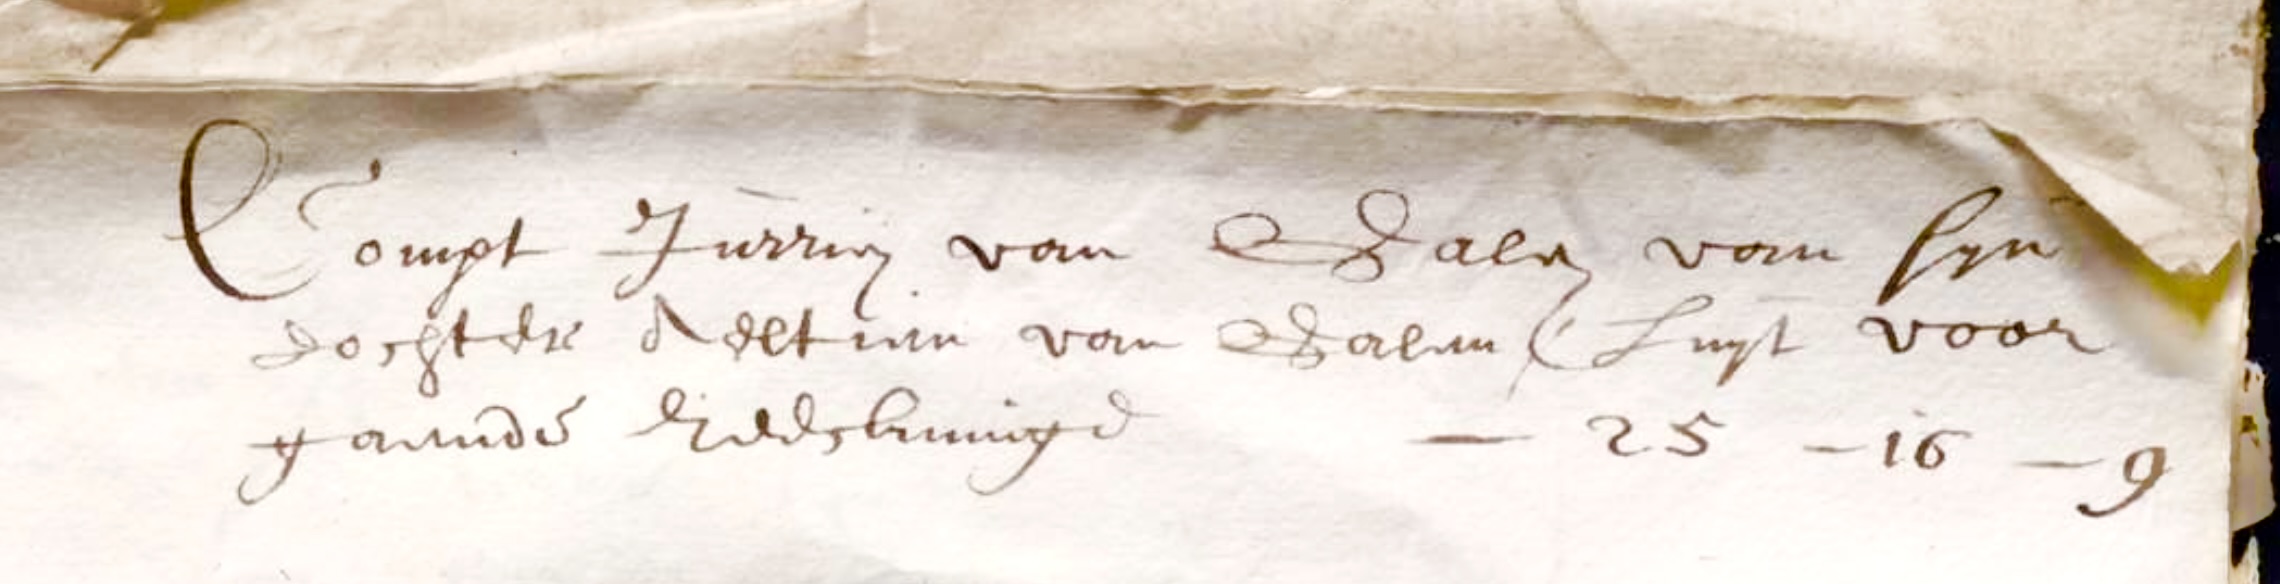 Compt Jurrien van Galen van syn
dochter Aeltien van Galen luyt voor
gaende Reeckeninge — 25 – 16 – 9